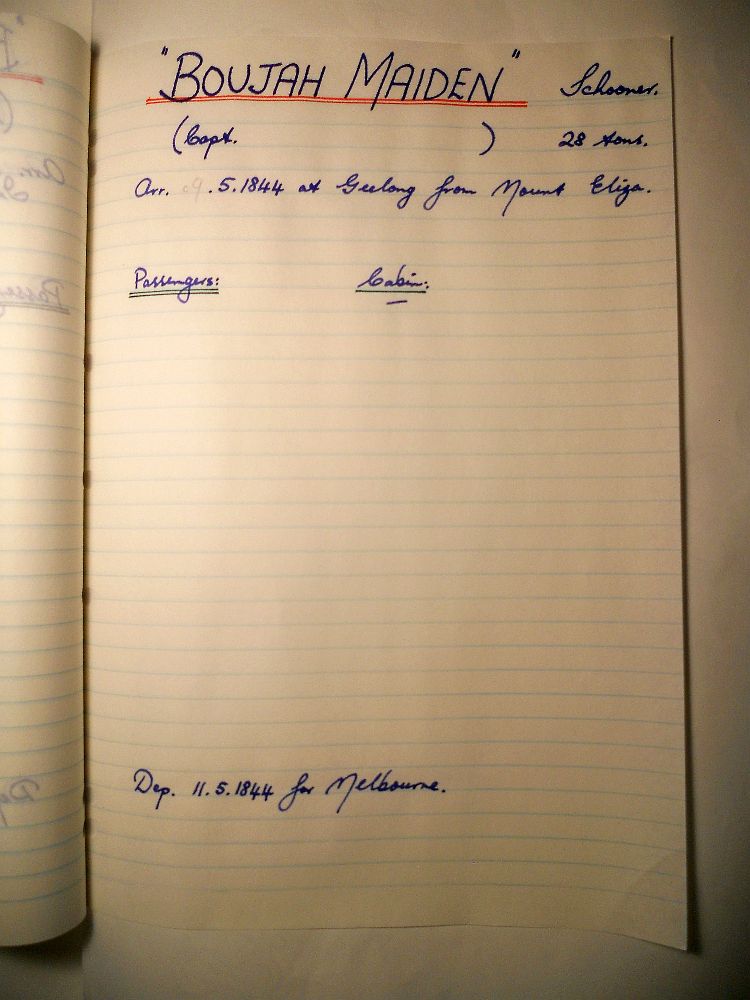 "BOUJAH MAIDEN" Schooner.
(Capt. ) 28 tons.
Arr. .5.1844 at Geelong from Mount Eliza.
Passengers: Cabin:
Dep. 11.5.1844 for Melbourne.